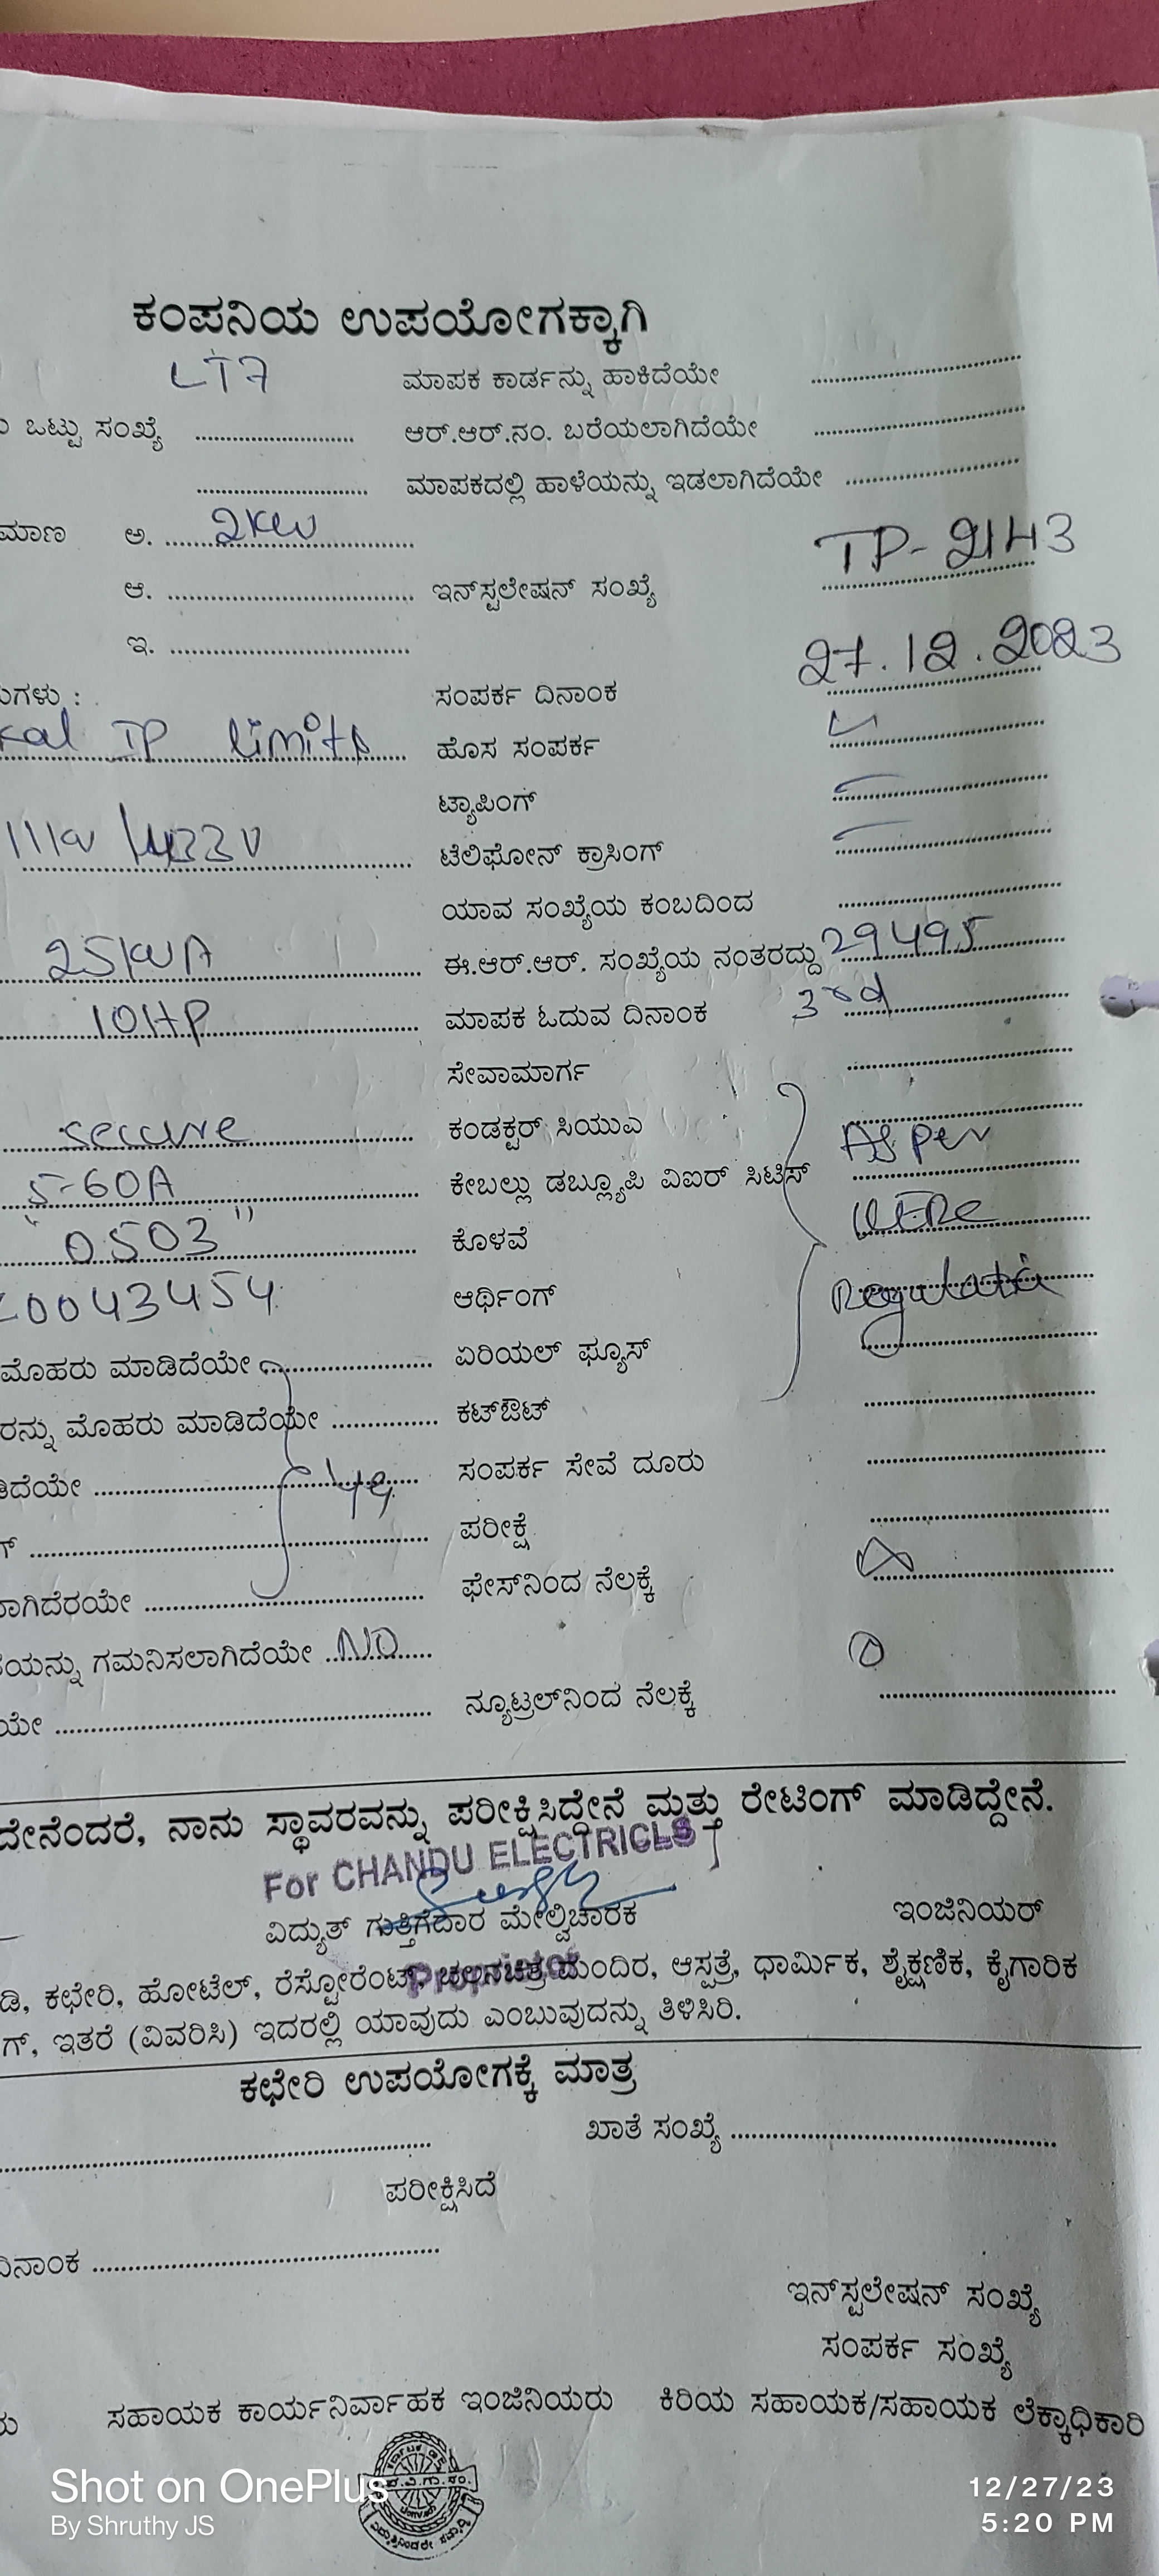 ಕಂಪನಿಯ ಉಪಯೋಗಕ್ಕಾಗಿ
LT7 ಮಾಪಕ ಕಾರ್ಡನ್ನು ಹಾಕಿದೆಯೇ
ಒಟ್ಟು ಸಂಖ್ಯೆ ಆರ್.ಆರ್.ನಂ. ಬರೆಯಲಾಗಿದೆಯೇ
ಮಾಪಕದಲ್ಲಿ ಹಾಳೆಯನ್ನು ಇಡಲಾಗಿದೆಯೇ
ಮಾಣ ಅ. 2KW
ಆ. ಇನ್‌ಸ್ಟಲೇಷನ್ ಸಂಖ್ಯೆ TP-2143
ಇ.
ಗಳು : ಸಂಪರ್ಕ ದಿನಾಂಕ 27.12.2023
kal TP limits ಹೊಸ ಸಂಪರ್ಕ
ಟ್ಯಾಪಿಂಗ್
ಟೆಲಿಫೋನ್ ಕ್ರಾಸಿಂಗ್
ಯಾವ ಸಂಖ್ಯೆಯ ಕಂಬದಿಂದ
25KVA ಈ.ಆರ್.ಆರ್. ಸಂಖ್ಯೆಯ ನಂತರದ್ದು 29495
10HP ಮಾಪಕ ಓದುವ ದಿನಾಂಕ 3rd
ಸೇವಾಮಾರ್ಗ
secure ಕಂಡಕ್ಟರ್ ಸಿಯುಎ As per
5-60A ಕೇಬಲ್ಲು ಡಬ್ಲ್ಯೂಪಿ ವಿಐಆರ್ ಸಿಟಿಸ್
"0503" ಕೊಳವೆ KERC
0043454 ಆರ್ಥಿಂಗ್ Regulation
ಮೊಹರು ಮಾಡಿದೆಯೇ ಏರಿಯಲ್ ಫ್ಯೂಸ್
ರನ್ನು ಮೊಹರು ಮಾಡಿದೆಯೇ ಕಟ್‌ಔಟ್
ಡಿದೆಯೇ ಸಂಪರ್ಕ ಸೇವೆ ದೂರು
ಪರೀಕ್ಷೆ
ಾಗಿದೆರಯೇ ಫೇಸ್‌ನಿಂದ ನೆಲಕ್ಕೆ
ಯನ್ನು ಗಮನಿಸಲಾಗಿದೆಯೇ NO
ಯೇ ನ್ಯೂಟ್ರಲ್‌ನಿಂದ ನೆಲಕ್ಕೆ
ದೇನೆಂದರೆ, ನಾನು ಸ್ಥಾವರವನ್ನು ಪರೀಕ್ಷಿಸಿದ್ದೇನೆ ಮತ್ತು ರೇಟಿಂಗ್ ಮಾಡಿದ್ದೇನೆ.
For CHANDU ELECTRICLS
ವಿದ್ಯುತ್ ಗುತ್ತಿಗೆದಾರ ಮೇಲ್ವಿಚಾರಕ ಇಂಜಿನಿಯರ್
Proprietor
ಡಿ, ಕಛೇರಿ, ಹೋಟೆಲ್, ರೆಸ್ಟೋರೆಂಟ್, ಚಲನಚಿತ್ರ ಮಂದಿರ, ಆಸ್ಪತ್ರೆ, ಧಾರ್ಮಿಕ, ಶೈಕ್ಷಣಿಕ, ಕೈಗಾರಿಕ
ಗ್, ಇತರೆ (ವಿವರಿಸಿ) ಇದರಲ್ಲಿ ಯಾವುದು ಎಂಬುವುದನ್ನು ತಿಳಿಸಿರಿ.
ಕಛೇರಿ ಉಪಯೋಗಕ್ಕೆ ಮಾತ್ರ
ಖಾತೆ ಸಂಖ್ಯೆ
ಪರೀಕ್ಷಿಸಿದೆ
ದಿನಾಂಕ
ಇನ್‌ಸ್ಟಲೇಷನ್ ಸಂಖ್ಯೆ
ಸಂಪರ್ಕ ಸಂಖ್ಯೆ
ಸಹಾಯಕ ಕಾರ್ಯನಿರ್ವಾಹಕ ಇಂಜಿನಿಯರು ಕಿರಿಯ ಸಹಾಯಕ/ಸಹಾಯಕ ಲೆಕ್ಕಾಧಿಕಾರಿ
Shot on OnePlus
By Shruthy JS
12/27/23
5:20 PM